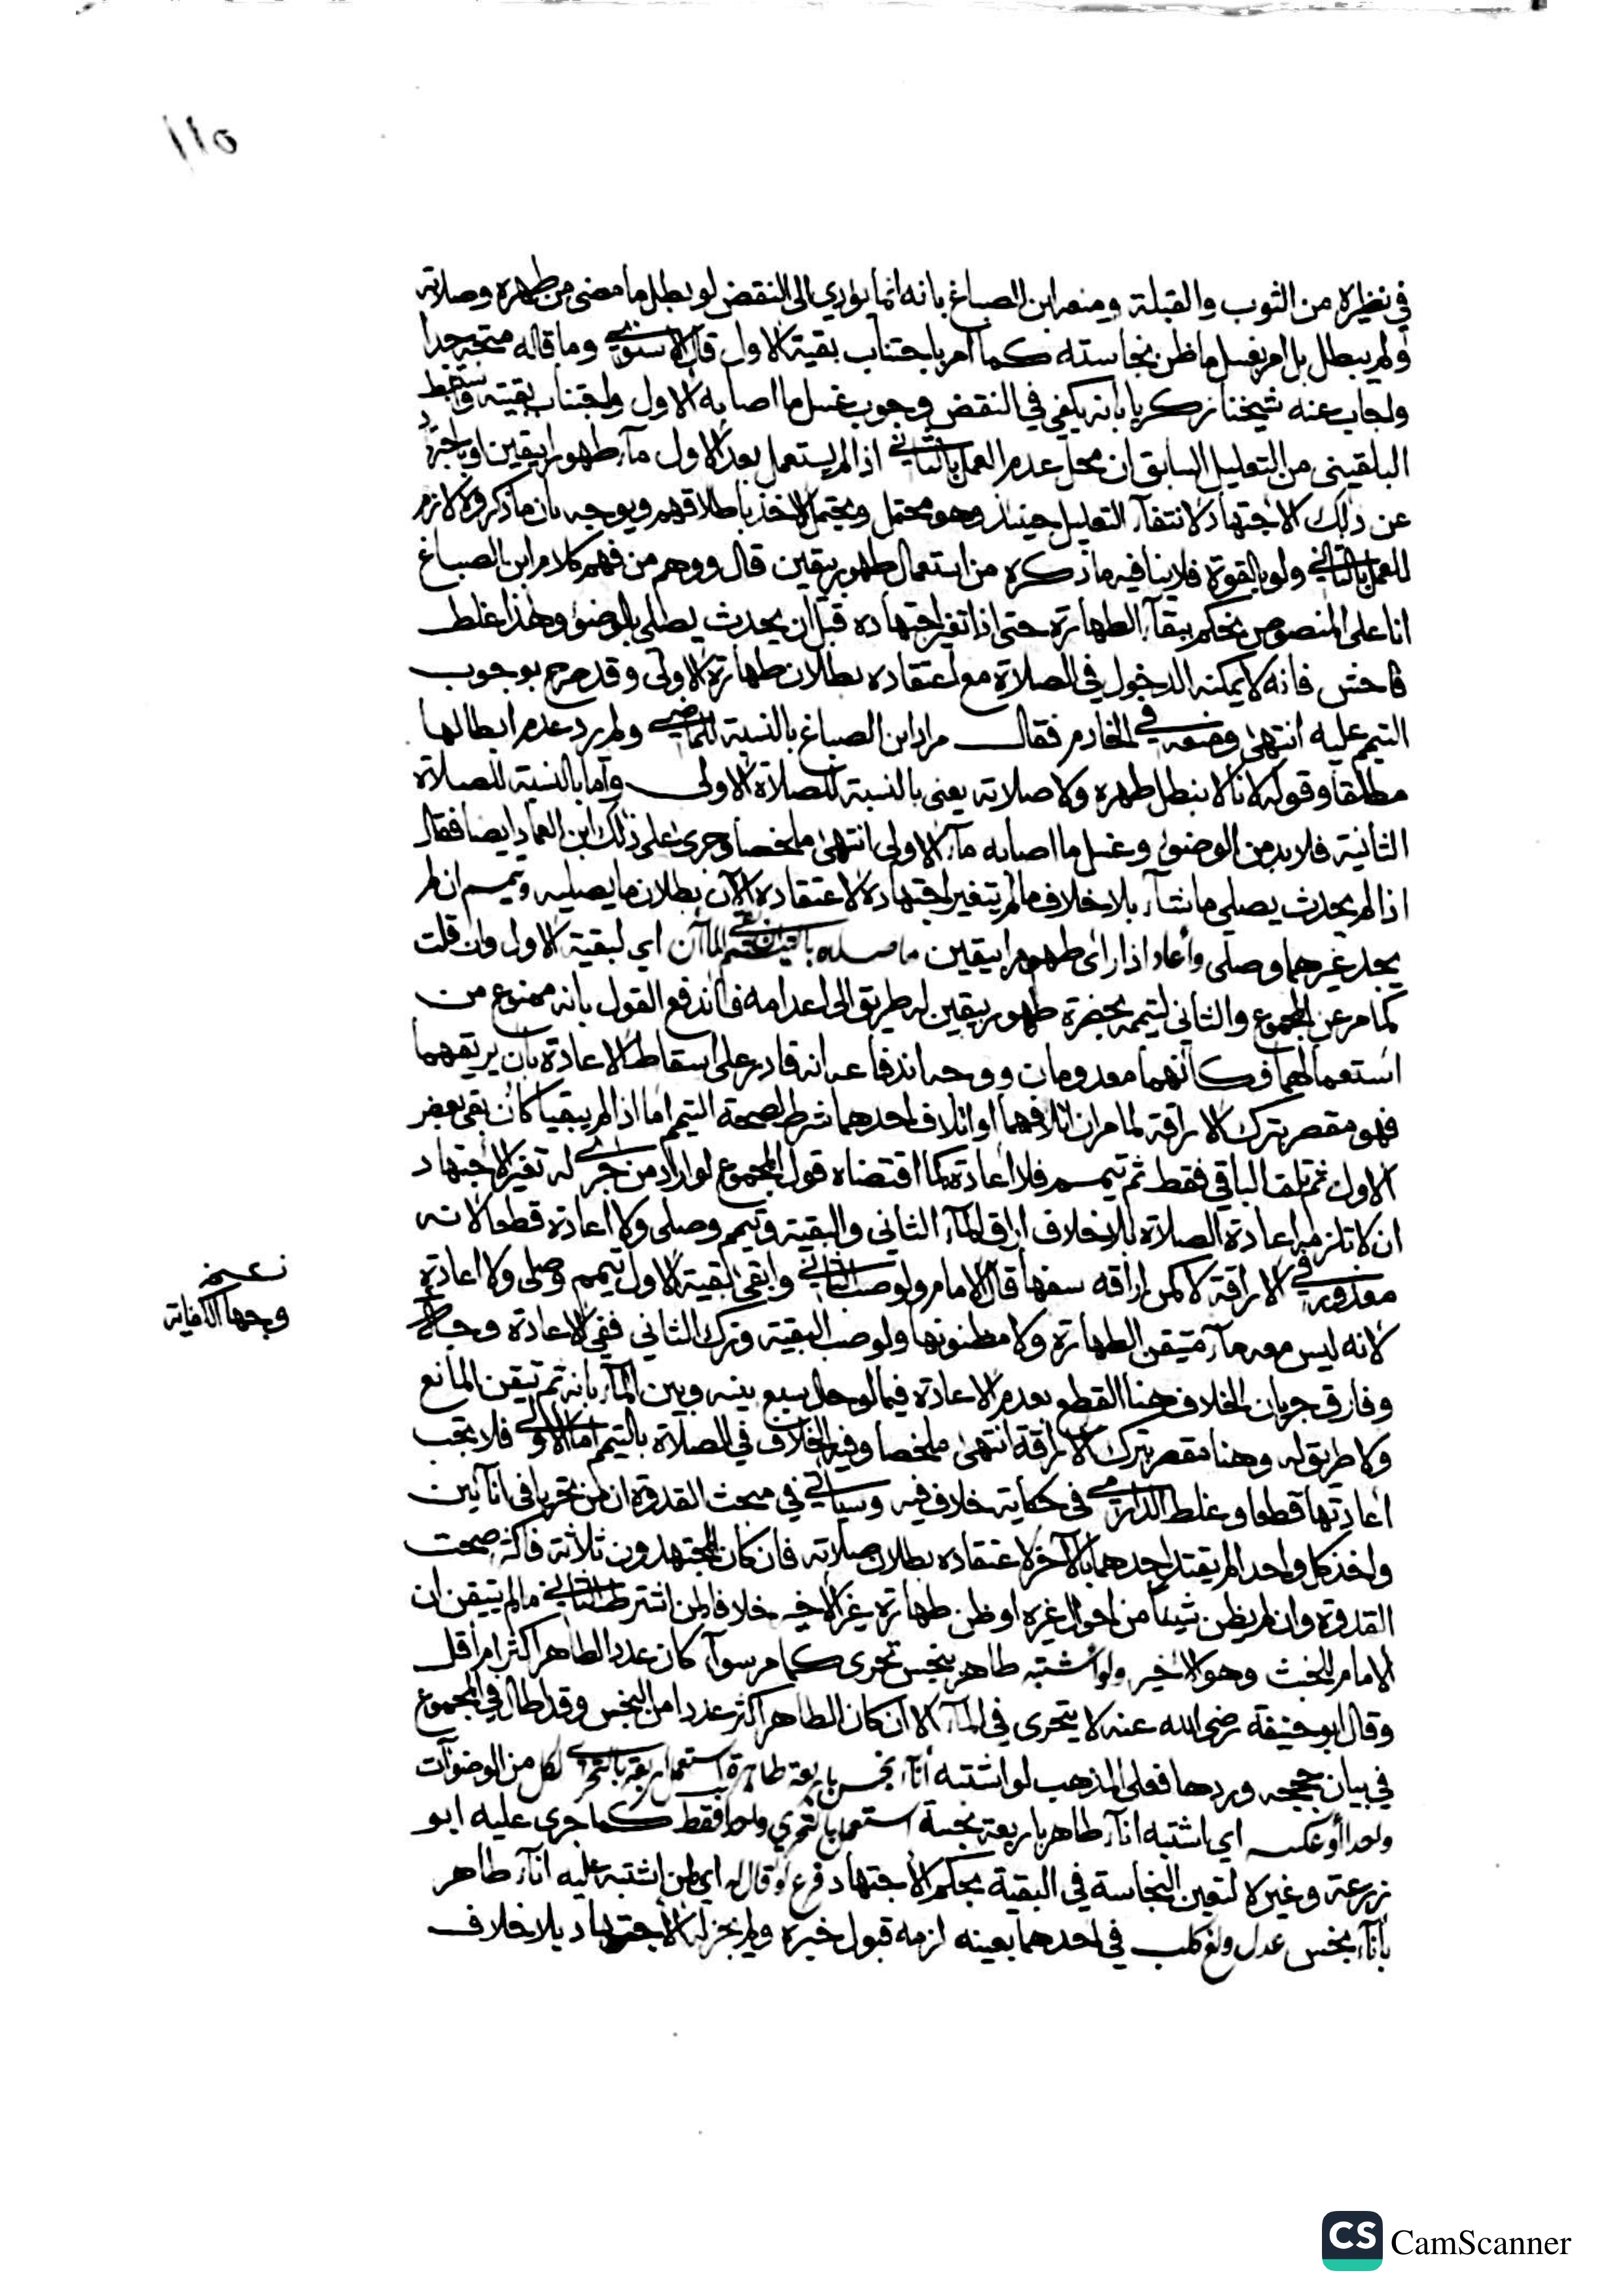 ١١٥
في نظيره من الثوب والقبلة ومنعه ابن الصباغ بانه انما يؤدي الى النقض لو بطل ما مضى من طهره وصلاته
ولم يبطل بل امر بغسل ما ظن نجاسته كما امر باجتناب بقية الاول قال الاسنوي وما قاله متجه جدا
واجاب عنه شيخنا زكريا بانه يكفي في النقض وجوب غسل ما اصابه الاول واجتناب بقيته واستنبط
البلقيني من التعليل السابق ان محل عدم العمل بالثاني اذا لم يستعمل بعد الاول مآء طهورا بيقين او باجتهاد
عن ذلك الاجتهاد لانتفآء التعليل حينئذ وهو محتمل ويحتمل الاخذ باطلاقهم ويوجه بان ما ذكروه لازم
للعمل بالثاني ولو بالقوة فلا ينافيه ما ذكره من استعمال طهور بيقين قال ووهم من فهم كلام ابن الصباغ
انا على المنصوص نحكم ببقآء الطهارة حتى اذا تغير اجتهاده قبل ان يحدث يصلي بالوضوء وهذا غلط
فاحش فانه لا يمكنه الدخول في الصلاة مع اعتقاده بطلان طهارة الاولى وقد صرح بوجوب
التيمم عليه انتهى وضعفه في الخادم فقال مراد ابن الصباغ بالنسبة للماضي ولم يرد عدم ابطالها
مطلقا وقوله لانا لا نبطل طهره ولا صلاته يعني بالنسبة للصلاة الاولى واما بالنسبة للصلاة
الثانية فلا بد من الوضوء وغسل ما اصابه مآء الاولى انتهى ملخصا وجرى على ذلك ابن العماد ايضا فقال
اذا لم يحدث يصلي ما شآء بلا خلاف ما لم يتغير اجتهاده لاعتقاده الآن بطلان ما يصليه ويتيمم ان لم
يجد غيرهما وصلى وأعاد اذا رأى طهورا بيقين ما صلاه باقيا المآآن اي لبقية الاول وان قلت
كما مر عن المجموع والثاني لتيممه بحضرة طهور بيقين له طريق الى اعدامه فاندفع القول بانه ممنوع من
استعمالهما فكأنهما معدومان ووجه اندفاعه انه قادر على اسقاط الاعادة بان يريقهما
فهو مقصر بترك الاراقة لما مر ان اتلافهما او اتلاف احدهما شرط لصحة التيمم اما اذا لم يبقيا كان بقي بعض
الاول ثم تلف الباقي فقط ثم تيمم فلا اعادة كما اقتضاه قول المجموع لو اراد من جرى له تغير الاجتهاد
ان لا تلزمه اعادة الصلاة بلا خلاف اراق المآء الثاني والبقية وتيمم وصلى ولا اعادة قطعا لانه
معذور في الاراقة لا كمن اراقه سفها قال الامام ولو صب الثاني وابقى بقية الاول تيمم وصلى ولا اعادة
لانه ليس معه مآء متيقن الطهارة ولا مظنونها ولو صب البقية وترك الثاني ففي الاعادة وجهان
نعم
وجها الكفاية
وفارق جريان الخلاف هنا القطع بعدم الاعادة فيما لو حال سبع بينه وبين المآء بانه ثم تيقن المانع
ولا طريق له وهنا مقصر بترك الاراقة انتهى ملخصا وفيه الخلاف في الصلاة بالتيمم اما الاولى فلا تجب
اعادتها قطعا وغلط الدارمي في حكاية خلاف فيه وسيأتي في مبحث القدوة ان من تحريا في انآئين
واخذ كل واحدا لم يقتد احدهما بالآخر لاعتقاده بطلان صلاته فان كان المجتهدون ثلاثة فاكثر صحت
القدوة وان لم يظن شيئا من احوال غيره او ظن طهارة غير الاخير خلافا لمن اشترط الثاني ما لم يتيقن ان
الامام المحدث وهو الاخير ولو اشتبه طاهر بنجس تحرى كما مر سوآء كان عدد الطاهر اكثر ام اقل
وقال ابو حنيفة رضي الله عنه لا يتحرى في المآء الا ان كان الطاهر اكثر عددا من النجس وقد اطال في المجموع
في بيان حججه وردها فعلى المذهب لو اشتبه انآء نجس باربعة طاهرة استعمل اربعة بالتحري لكل من الوضوآت
واحدا أو عكسه اي اشتبه انآء طاهر باربعة نجسة استعمل بالتحري واحدا فقط كما جرى عليه ابو
زرعة وغيره لتعين النجاسة في البقية بحكم الاجتهاد فرع لو قال له اي لمن اشتبه عليه انآء طاهر
بانآء نجس عدل ولغ كلب في احدهما بعينه لزمه قبول خبره ولم يجز له الاجتهاد بلا خلاف
CS CamScanner